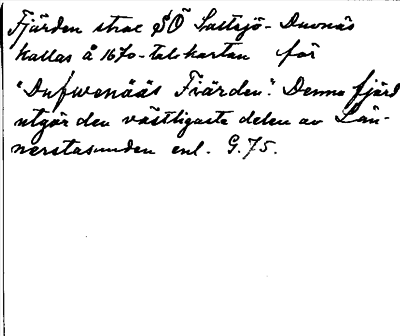 Fjärden strax SÖ Saltsjö-Duvnäs
kallas å 1670-talskartan för
"Dufwenääs Fiärden". Denna fjärd
utgör den västligaste delen av Län-
nerstasunden enl. G.75.